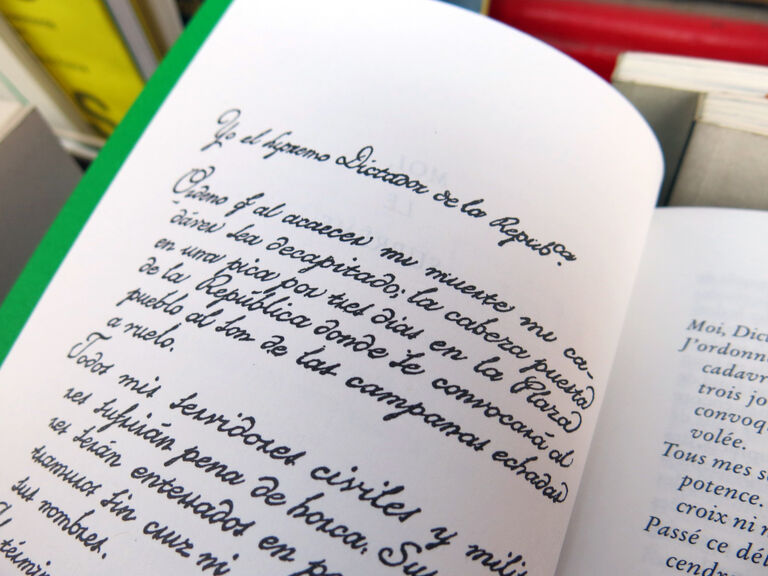 Yo el Supremo Dictador de la Repubᶜᵃ
Ordeno q al acaecer mi muerte mi ca-
dáver sea decapitado; la cabeza puesta
en una pica por tres días en la Plaza
de la República donde se convocará al
pueblo al son de las campanas echadas
a vuelo.
Todos mis servidores civiles y milit
res sufrirán pena de horca. Su
res serán enterrados en po
tramuros sin cruz ni
sus nombres.
términ
Moi, Dic
J'ordonn
cadavr
trois jo
convoq
volée.
Tous mes s
potence.
croix ni r
Passé ce dél
cendr